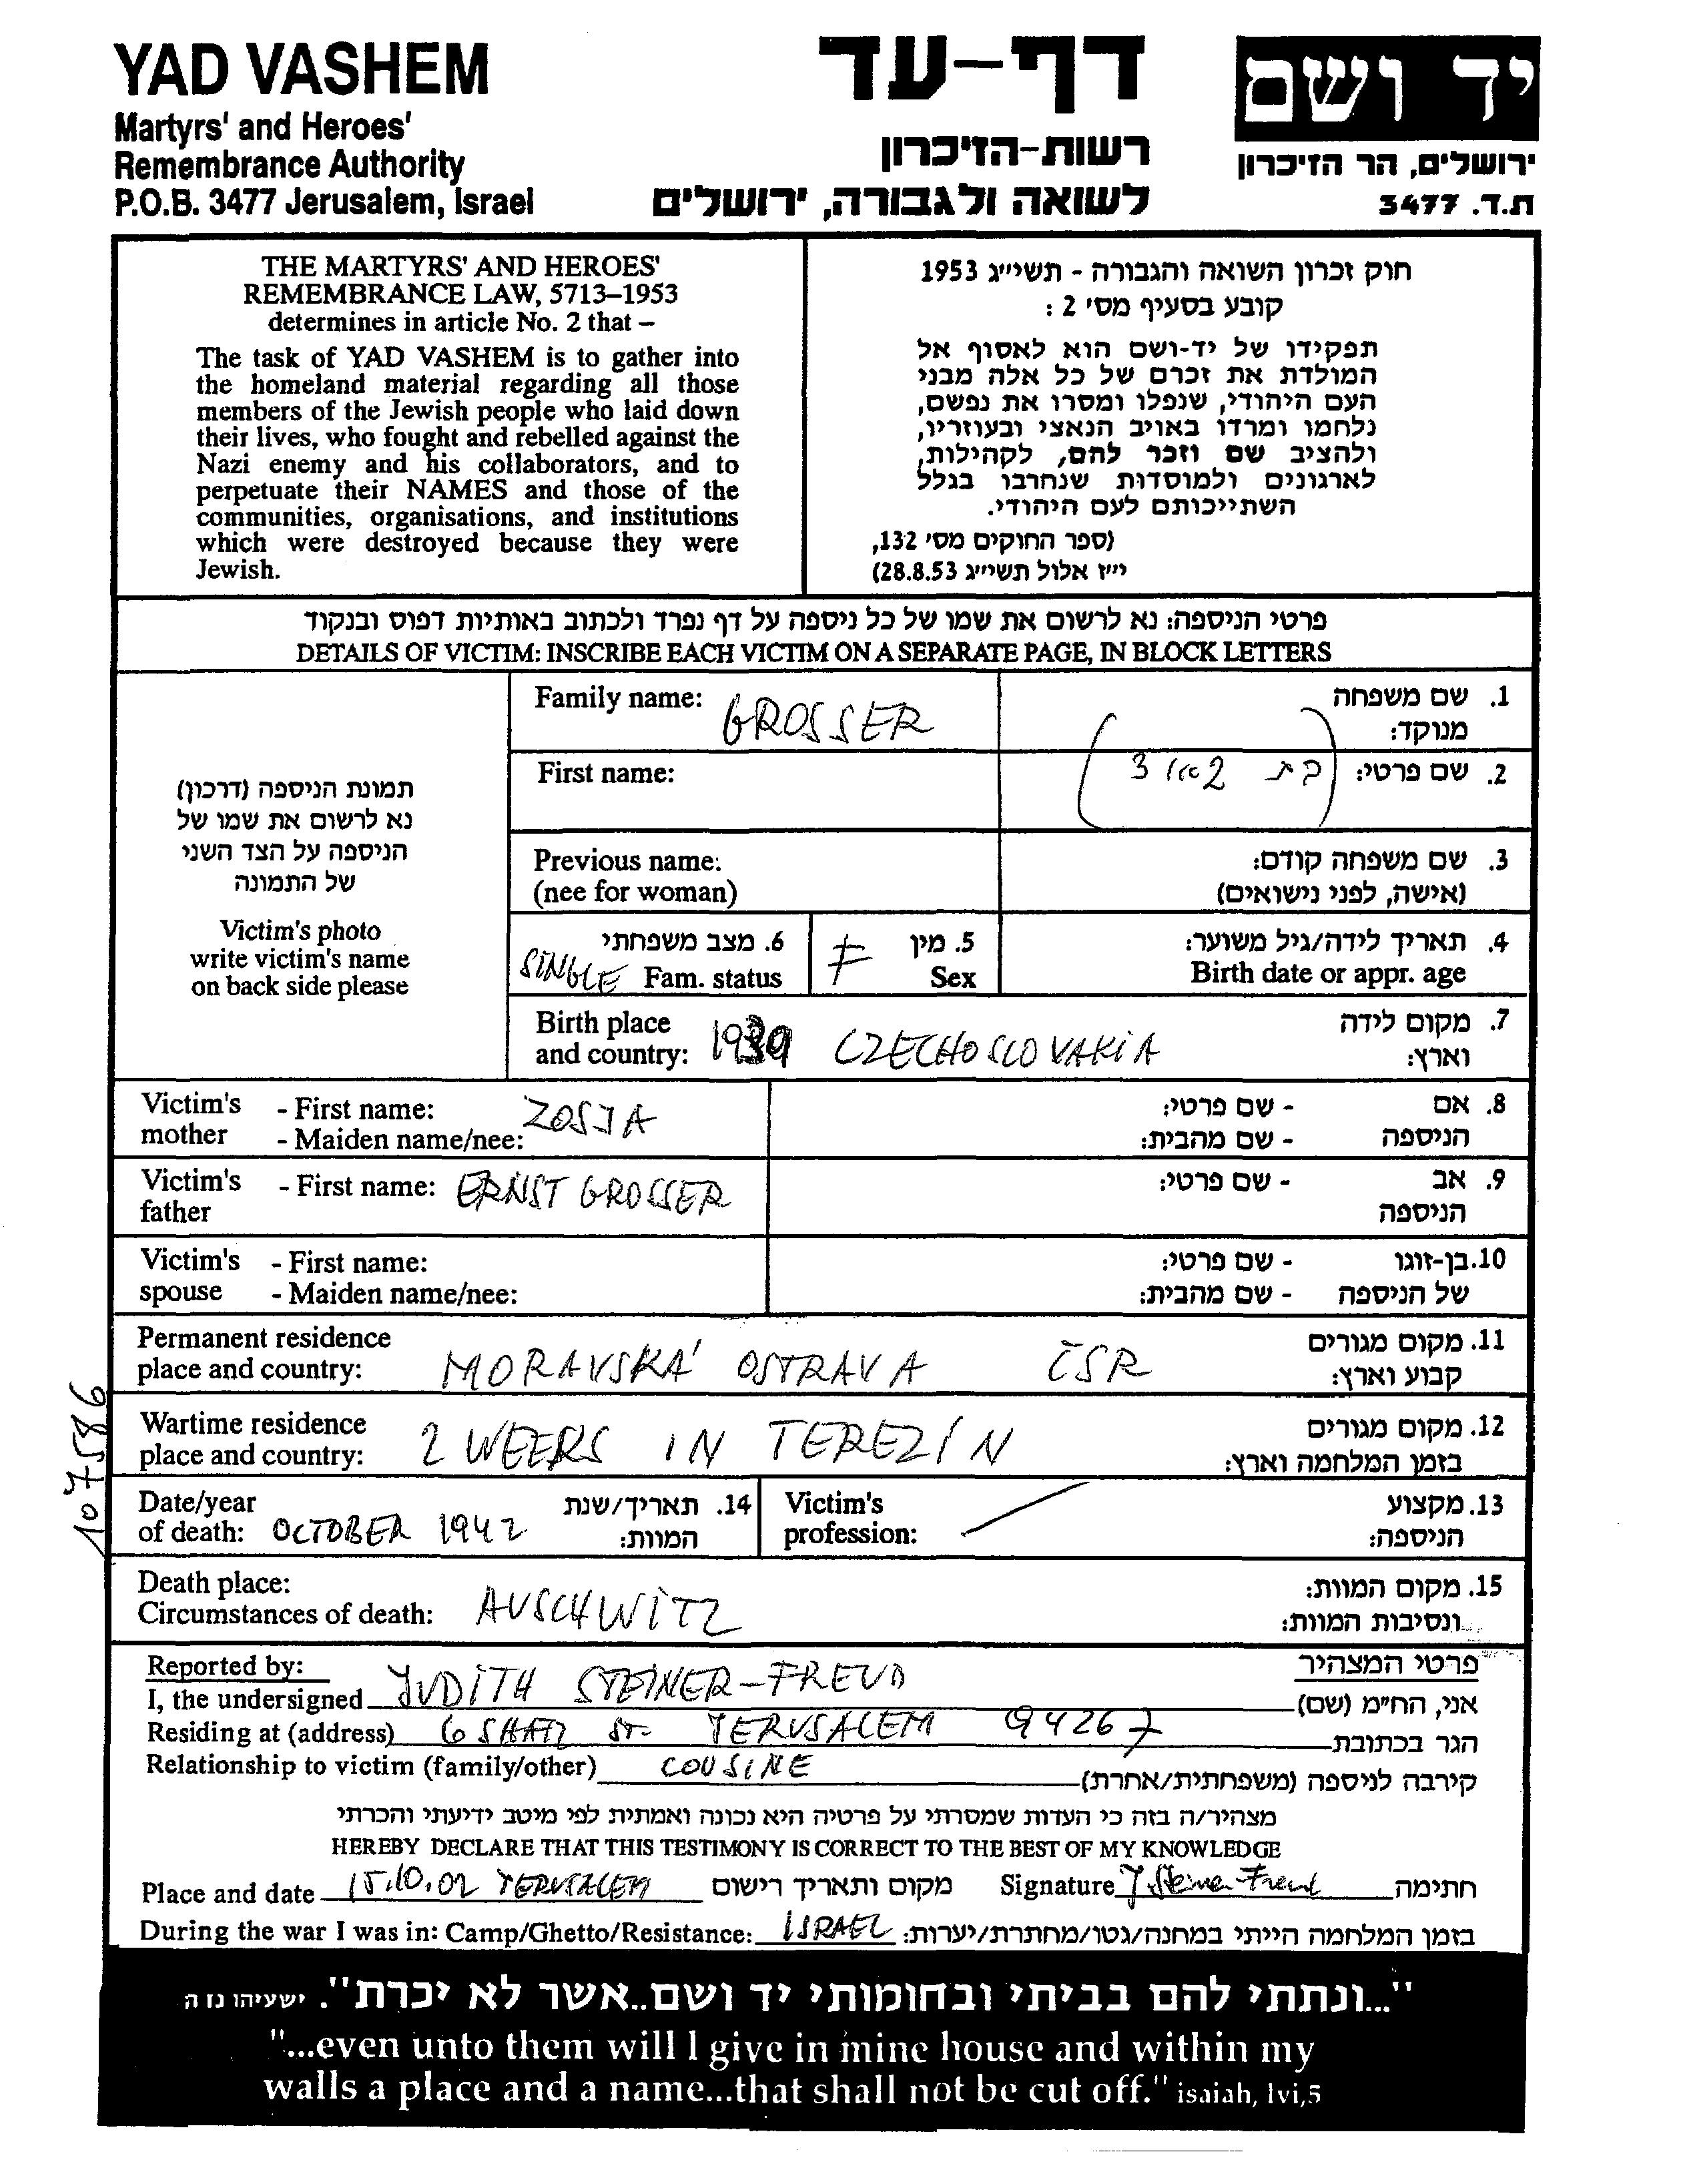 YAD VASHEM
Martyrs' and Heroes'
Remembrance Authority
P.O.B. 3477 Jerusalem, Israel
דף-עד
רשות-הזיכרון
לשואה ולגבורה, ירושלים
יד ושם
ירושלים, הר הזיכרון
ת.ד. 3477
THE MARTYRS' AND HEROES'
REMEMBRANCE LAW, 5713–1953
determines in article No. 2 that –
The task of YAD VASHEM is to gather into
the homeland material regarding all those
members of the Jewish people who laid down
their lives, who fought and rebelled against the
Nazi enemy and his collaborators, and to
perpetuate their NAMES and those of the
communities, organisations, and institutions
which were destroyed because they were
Jewish.
חוק זכרון השואה והגבורה - תשי״ג 1953
קובע בסעיף מס׳ 2 :
תפקידו של יד-ושם הוא לאסוף אל
המולדת את זכרם של כל אלה מבני
העם היהודי, שנפלו ומסרו את נפשם,
נלחמו ומרדו באויב הנאצי ובעוזריו,
ולהציב שם וזכר להם, לקהילות,
לארגונים ולמוסדות שנחרבו בגלל
השתייכותם לעם היהודי.
(ספר החוקים מס׳ 132,
י״ז אלול תשי״ג 28.8.53)
פרטי הניספה: נא לרשום את שמו של כל ניספה על דף נפרד ולכתוב באותיות דפוס ובנקוד
DETAILS OF VICTIM: INSCRIBE EACH VICTIM ON A SEPARATE PAGE, IN BLOCK LETTERS
תמונת הניספה (דרכון)
נא לרשום את שמו של
הניספה על הצד השני
של התמונה
Victim's photo
write victim's name
on back side please
Family name: GROSSER
1. שם משפחה
מנוקד:
First name:
2. שם פרטי: (בת 2 או 3)
Previous name:
(nee for woman)
3. שם משפחה קודם:
(אישה, לפני נישואים)
6. מצב משפחתי
SINGLE Fam. status
5. מין
F Sex
4. תאריך לידה/גיל משוער:
Birth date or appr. age
Birth place
and country: 1939 CZECHOSLOVAKIA
7. מקום לידה
וארץ:
Victim's - First name: ZOSJA
mother - Maiden name/nee:
8. אם - שם פרטי:
הניספה - שם מהבית:
Victim's - First name: ERNST GROSSER
father
9. אב - שם פרטי:
הניספה
Victim's - First name:
spouse - Maiden name/nee:
10. בן-זוגו - שם פרטי:
של הניספה - שם מהבית:
Permanent residence
place and country: MORAVSKÁ OSTRAVA ČSR
11. מקום מגורים
קבוע וארץ:
Wartime residence
place and country: 2 WEEKS IN TEREZIN
12. מקום מגורים
בזמן המלחמה וארץ:
107586
Date/year
of death: OCTOBER 1942
14. תאריך/שנת
המוות:
Victim's
profession:
13. מקצוע
הניספה:
Death place:
Circumstances of death: AUSCHWITZ
15. מקום המוות:
ונסיבות המוות:
Reported by:
פרטי המצהיר
I, the undersigned JUDITH STEINER-FREUD אני, הח״מ (שם)
Residing at (address) 6 SHATZ ST- JERUSALEM 94267 הגר בכתובת
Relationship to victim (family/other) COUSINE קירבה לניספה (משפחתית/אחרת)
מצהיר/ה בזה כי העדות שמסרתי על פרטיה היא נכונה ואמתית לפי מיטב ידיעתי והכרתי
HEREBY DECLARE THAT THIS TESTIMONY IS CORRECT TO THE BEST OF MY KNOWLEDGE
Place and date 15.10.02 JERUSALEM מקום ותאריך רישום Signature J Steiner-Freud חתימה
During the war I was in: Camp/Ghetto/Resistance: ISRAEL בזמן המלחמה הייתי במחנה/גטו/מחתרת/יערות:
"...ונתתי להם בביתי ובחומותי יד ושם..אשר לא יכרת". ישעיהו נז ה
"...even unto them will I give in mine house and within my
walls a place and a name...that shall not be cut off." isaiah, lvi,5